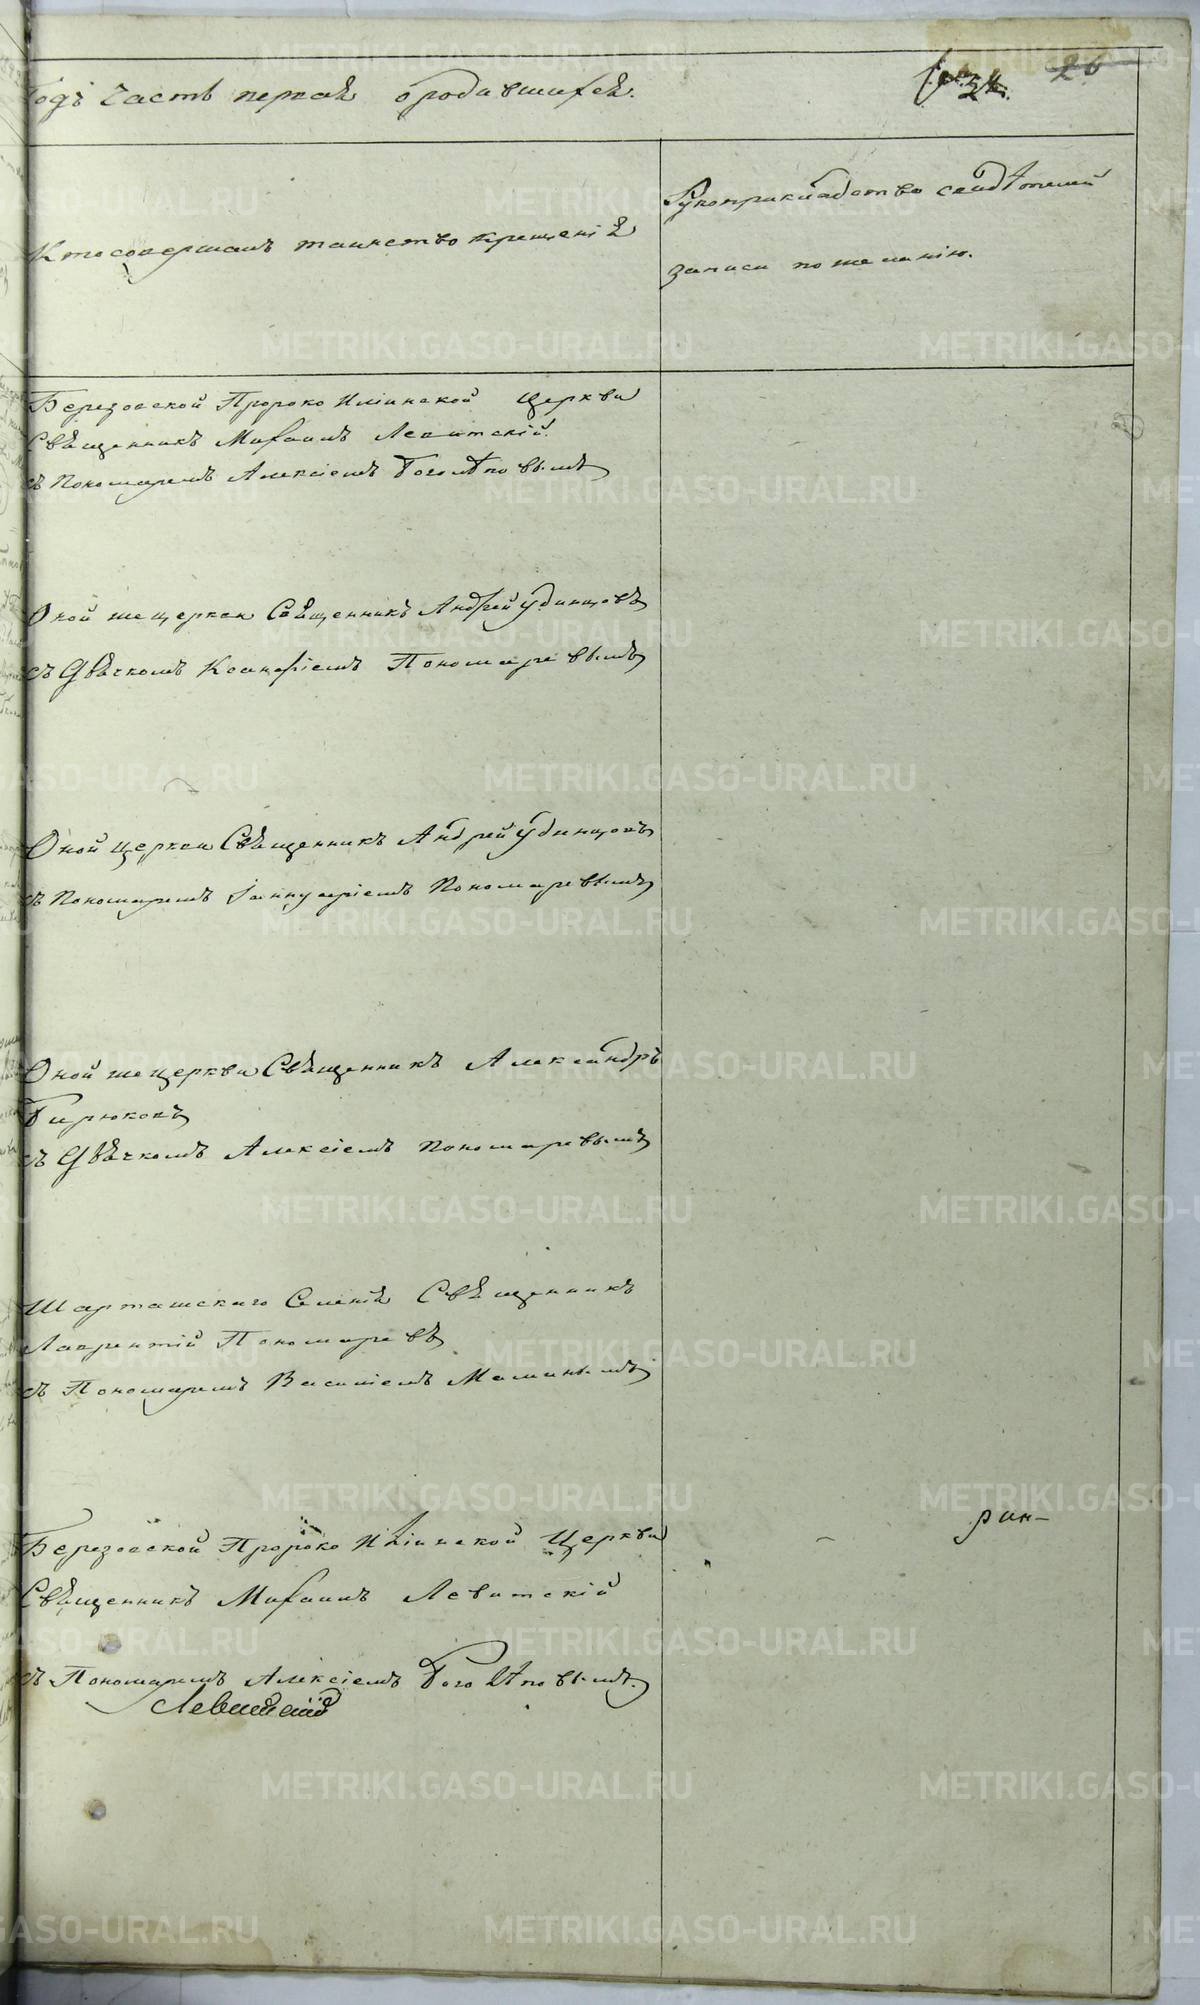 годъ Часть первая о родившихся.
26
Кто совершалъ таинство крещенія
Рукоприкладство свидѣтелей
записи по желанію.
Березовской Пророко Илiинской Церкви
Священникъ Михаилъ Левитскій.
съ Пономаремъ Алексіемъ Боголѣповымъ
Оной же церкви Священникъ Андрей Удинцовъ
съ Дьячкомъ Ксанфіемъ Пономаревымъ
Оной церкви Священникъ Андрей Удинцовъ
съ Пономаремъ Іаннуаріемъ Пономаревымъ
Оной же церкви Священникъ Александръ
Бирюковъ
съ Дьячкомъ Алексіемъ Пономаревымъ
Шарташскаго Селенія Священникъ
Лаврентій Пономаревъ
съ Пономаремъ Василіемъ Маминымъ
Березовской Пророко Иліинской Церкви
рин-
Священникъ Михаилъ Левитскій
съ Пономаремъ Алексіемъ Боголѣповымъ.
Левитскій
METRIKI.GASO-URAL.RU